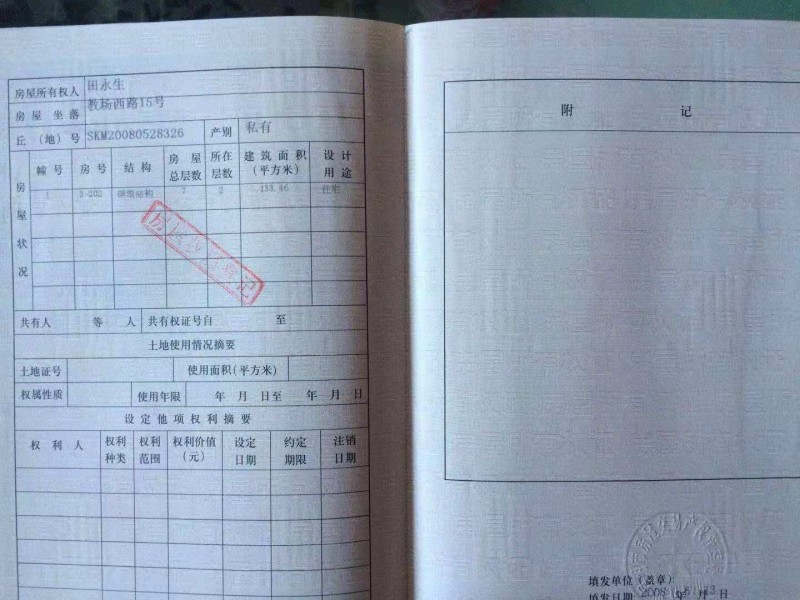 房屋所有权人 田永生
房屋坐落 教场西路15号
丘（地）号 SKM20080528326 产别 私有
房屋状况
幢号 房号 结构 房屋总层数 所在层数 建筑面积（平方米） 设计用途
1 3-202 7 2 133.46 住宅
共有人 等 人 共有权证号自 至
土地使用情况摘要
土地证号 使用面积(平方米)
权属性质 使用年限 年 月 日至 年 月 日
设定他项权利摘要
权利人 权利种类 权利范围 权利价值（元） 设定日期 约定期限 注销日期
附 记
填发单位（盖章）
填发日期 2008 年 月 日